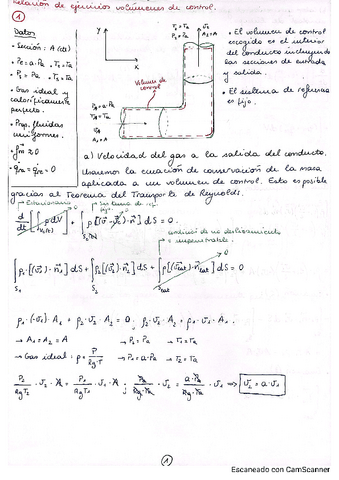 Relación de ejercicios volúmenes de control.
①
Datos
• Sección: A (cte)
• Pe = a·Pa • Te = Ta
• Ps = Pa • Ts = Ta
• Gas ideal y
calóricamente
perfecto.
• Prop. fluidas
uniformes.
Y
X
T2 = Ta
P2 = Pa
A2 = A
Volumen de
control
P1 = a·Pa
T1 = Ta
A1 = A
• El volumen de control
escogido es el interior
del conducto incluyendo
las secciones de entrada
y salida.
• El sistema de referencia
es fijo.
a) Velocidad del gas a la salida del conducto.
Usaremos la ecuación de conservación de la masa
aplicada a un volumen de control. Esto es posible
gracias al Teorema del Transporte de Reynolds.
Estacionario
d/dt ∫ρ dV + ∫ρ[(v̄ - v̄c)·n̄] dS = 0.
e impenetrable.
ρ1·(-v1)·A1 + ρ2·v2·A2 = 0; ρ2·v2·A2 = ρ1·v1·A1.
→ A1 = A2 = A → P2 = Pa → T1 = Ta
→ Gas ideal: ρ = P/(Rg·T) → P1 = a·Pa → T2 = Ta
P2/(Rg T2)·v2·A = P1/(Rg T1)·v1·A; Pa/(Rg·Ta)·v2 = a·Pa/(Rg·Ta)·v1 ⟹ v2 = a·v1
①
Escaneado con CamScanner